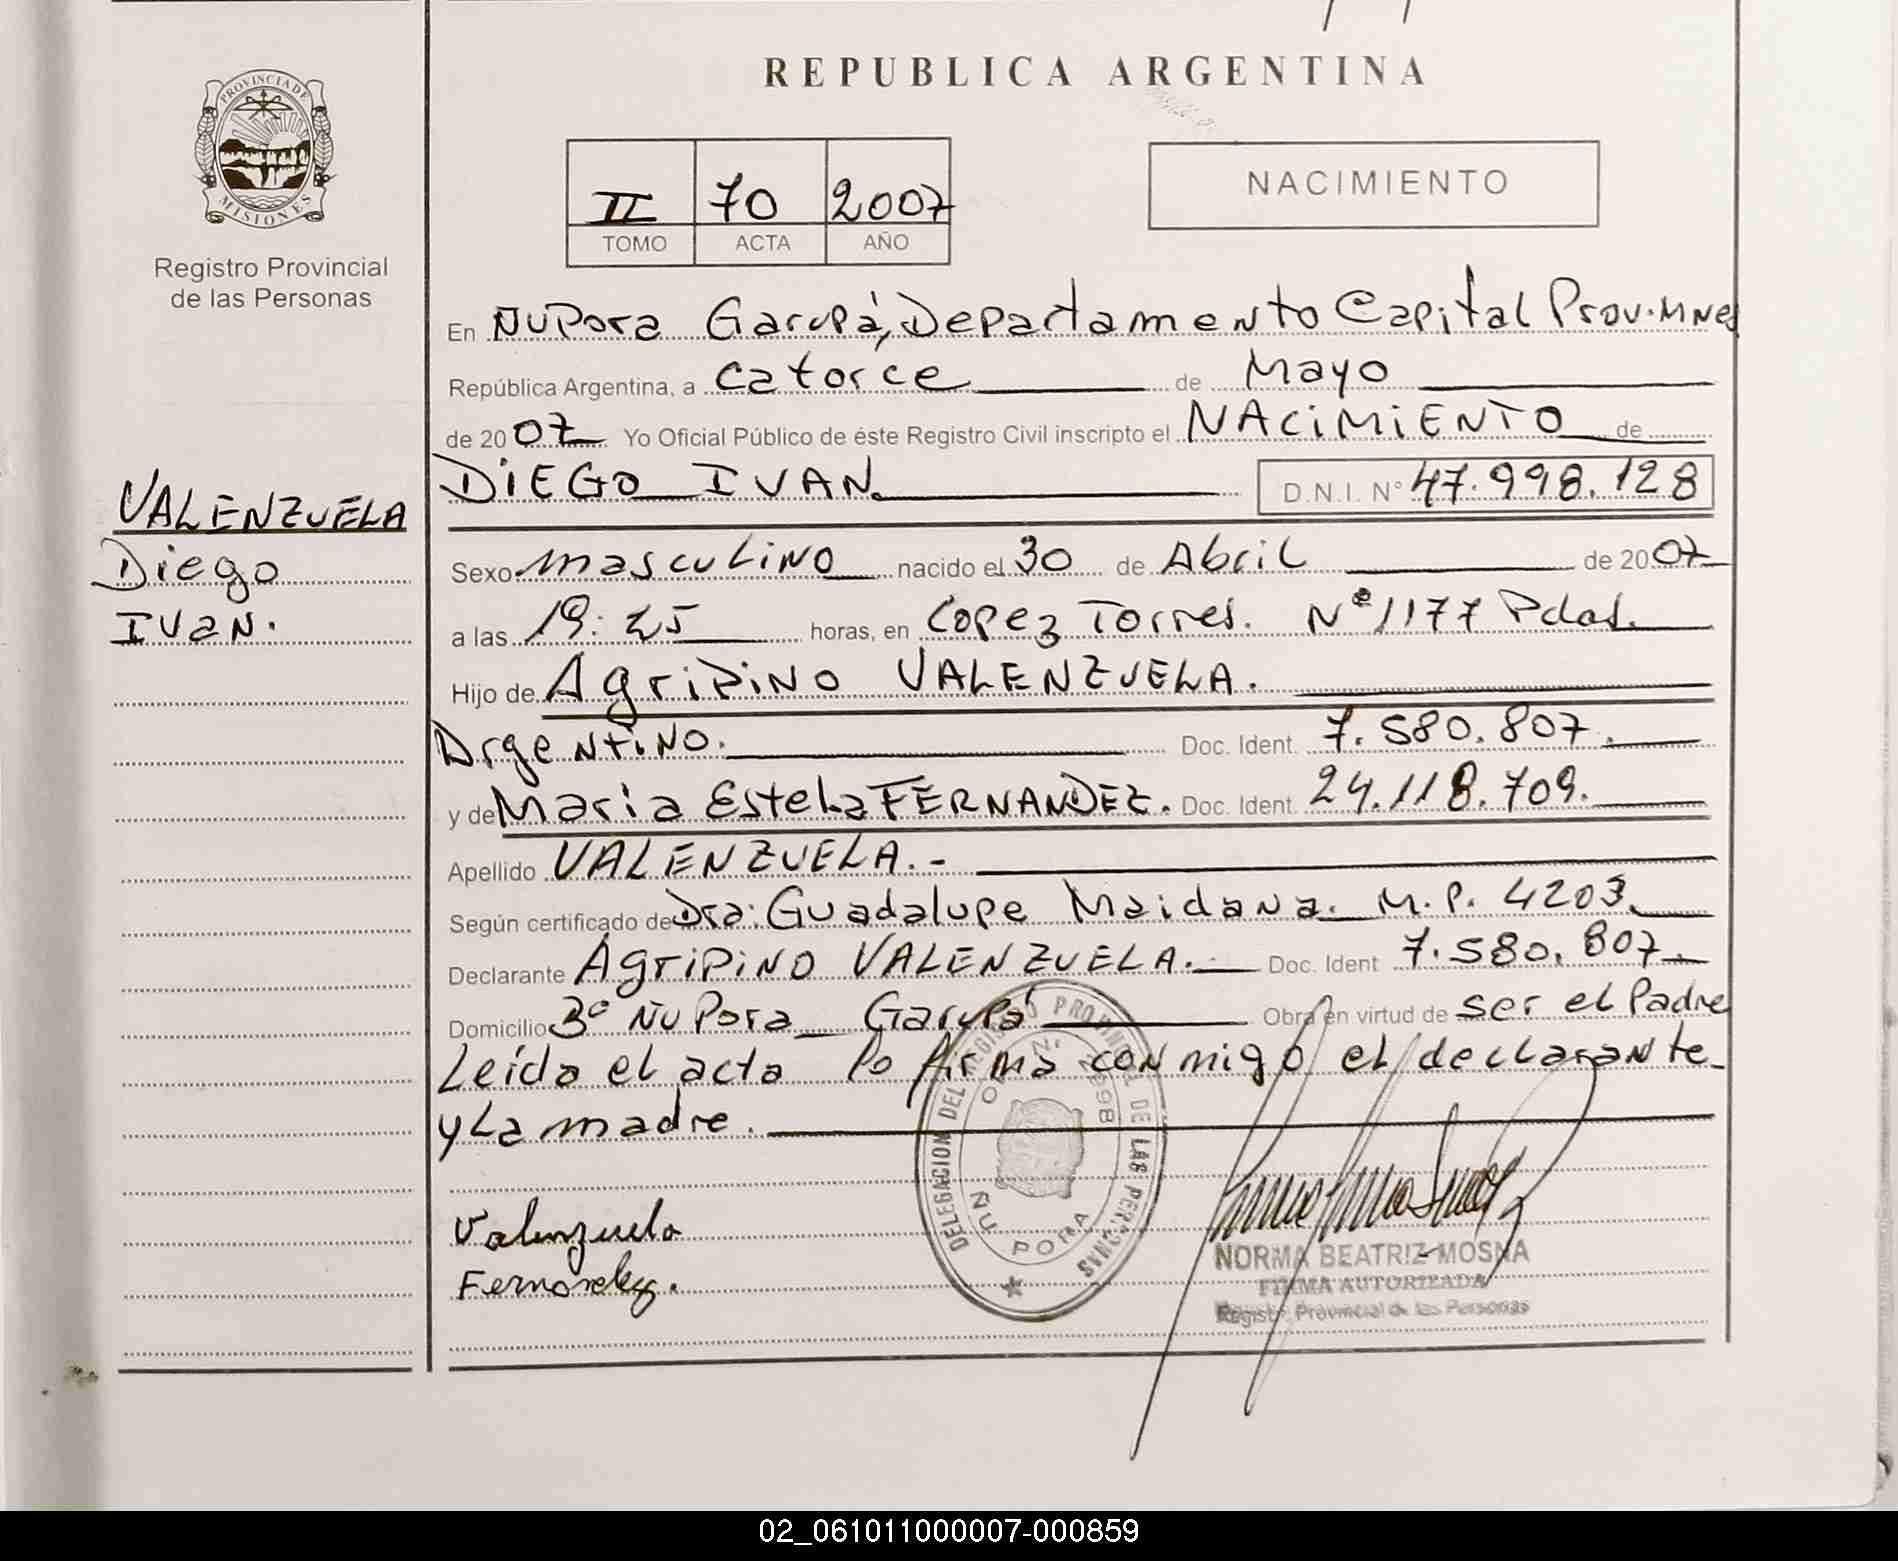 REPUBLICA ARGENTINA
PROVINCIA DE
MISIONES
Registro Provincial
de las Personas
II 70 2007
TOMO ACTA AÑO
NACIMIENTO
En ÑuPora Garupá, Departamento Capital Prov. Mnes
República Argentina, a catorce de Mayo
de 2007 Yo Oficial Público de éste Registro Civil inscripto el NACIMIENTO de
DIEGO IVAN. D.N.I. N° 47.998.128
VALENZUELA
Diego
IVan.
Sexo masculino nacido el 30 de Abril de 2007
a las 19:25 horas, en Lopez Torres. N° 1177 Pdas.
Hijo de Agripino VALENZUELA.
Argentino. Doc. Ident. 7.580.807.
y de Maria Estela FERNANDEZ. Doc. Ident. 24.118.709.
Apellido VALENZUELA.-
Según certificado de Dra: Guadalupe Maidana. M.P. 4203.
Declarante Agripino VALENZUELA. Doc. Ident 7.580.807.
Domicilio 3° Ñu Pora Garupá Obra en virtud de ser el Padre
Leída el acta lo firma conmigo el declarante
y La madre.
Valenzuela
Fernandez.
DELEGACION DEL REGISTRO PROVINCIAL DE LAS PERSONAS
2998
ÑU PORA
NORMA BEATRIZ MOSNA
FIRMA AUTORIZADA
Registro Provincial de las Personas
02_061011000007-000859